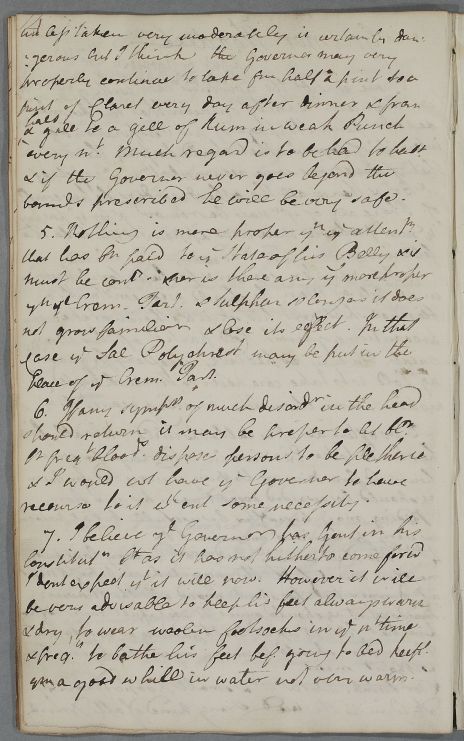 unless taken very moderately is certainly dan-
-gerous but I think the Governor may very
properly continue to take from half a pint to a
pint of Claret every day after dinner & from
half
a gill to a gill of Rum in weak Punch
every nt. Much regard is to be had to habit
& if the Governor never goes beyond the
bounds prescribed he will be very safe.
5. Nothing is more proper yn ye attentn
that has bn paid to ye State of his Belly & it
must be contd. nor is there any yg more proper
yn ye Crem. Tart. & Sulphur as long as it does
not grow familiar & lose its effect. In that
case ye Sal Polychrest may be put in the
place of ye Crem. Tart.
6. If any sympts. of much disordr in the head
should return it may be proper to let bld.
bt freqt bloodgs. dispose persons to be plethoric
& I would not have ye Governor to have
recourse to it wt. out some necessity.
7. I believe ye Governor has Gout in his
Constitutn bt as it has not hitherto come forwd
I dont expect yt it will now. However it will
be very adviseable to keep his feet always warm
& dry, to wear woolen footsocks in ye nt time
& freqly. to bathe his feet bef. going to bed keepg.
ym a good while in water not very warm.